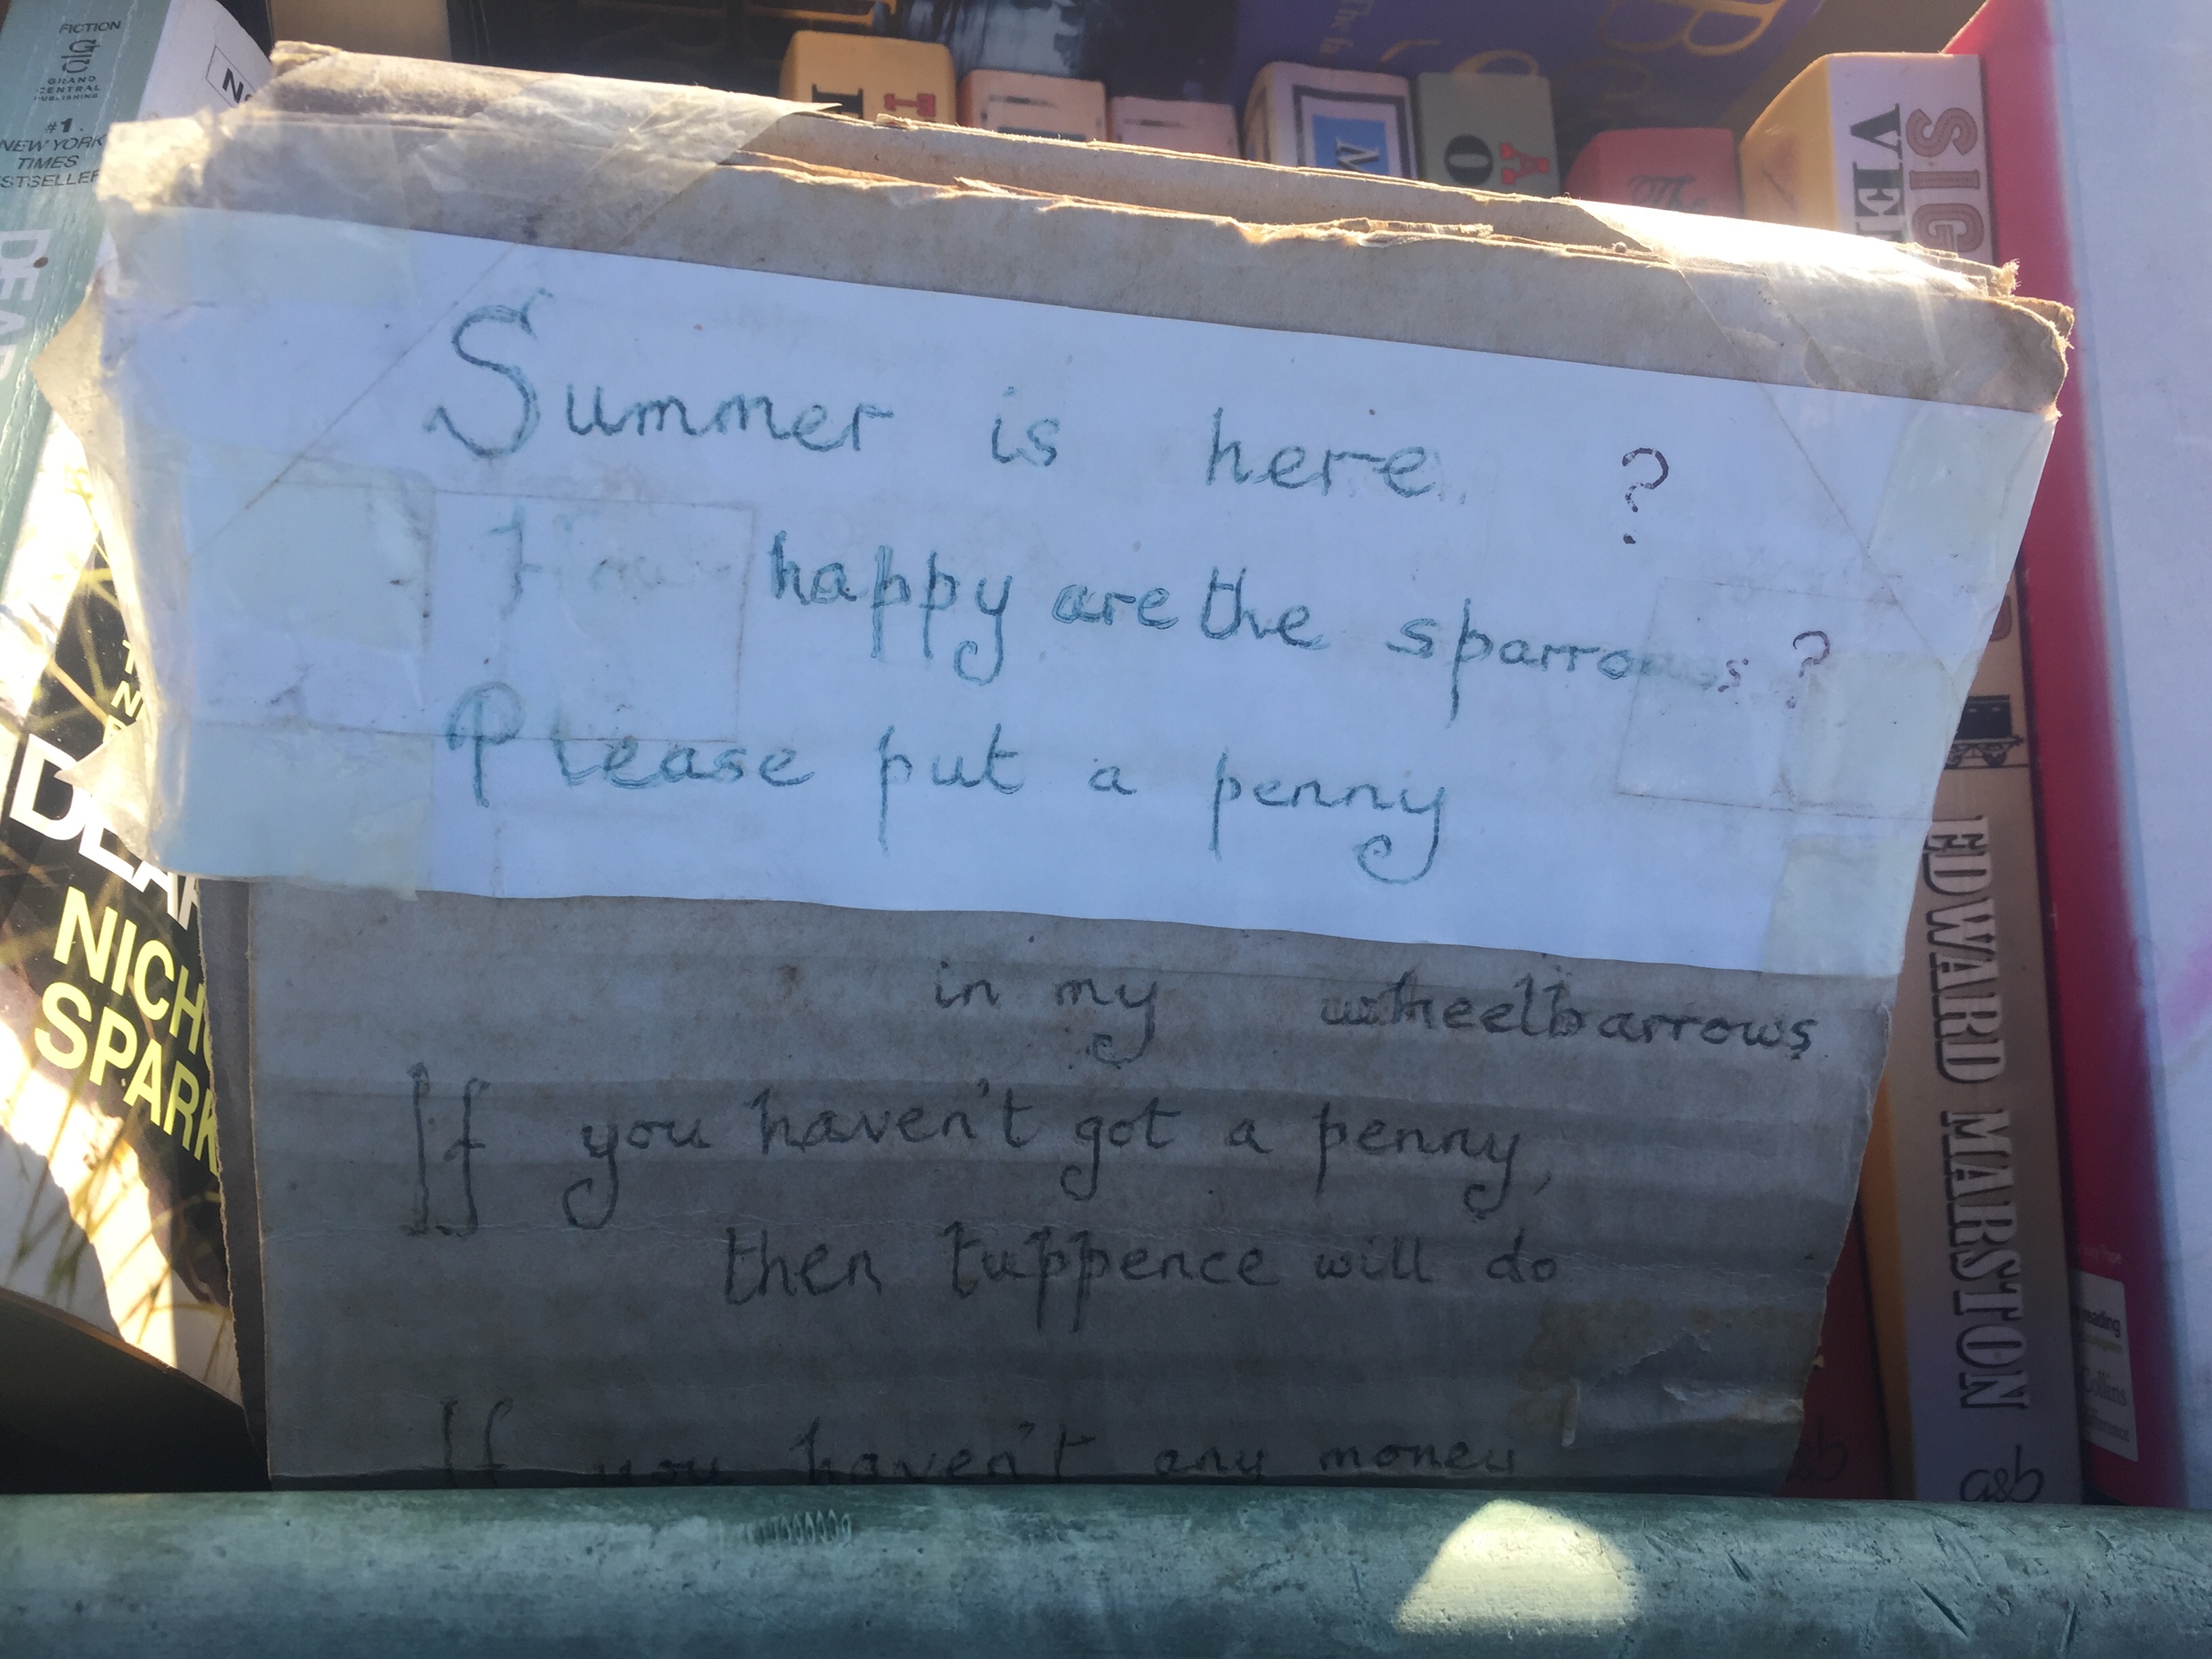 FICTION
GRAND
CENTRAL
PUBLISHING
#1
NEW YORK
TIMES
DEAR
NICHO
SPARK
Summer is here ?
happy are the sparrows ?
Please put a penny
in my wheelbarrows
If you haven't got a penny,
then tuppence will do
If you haven't any money
SIG
The
EDWARD MARSTON
a&b
reading
Collins